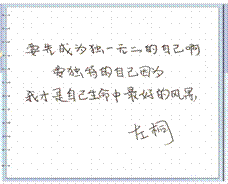 要先成为独一无二的自己啊
要独特的自己因为
我才是自己生命中最好的风景,
左桐